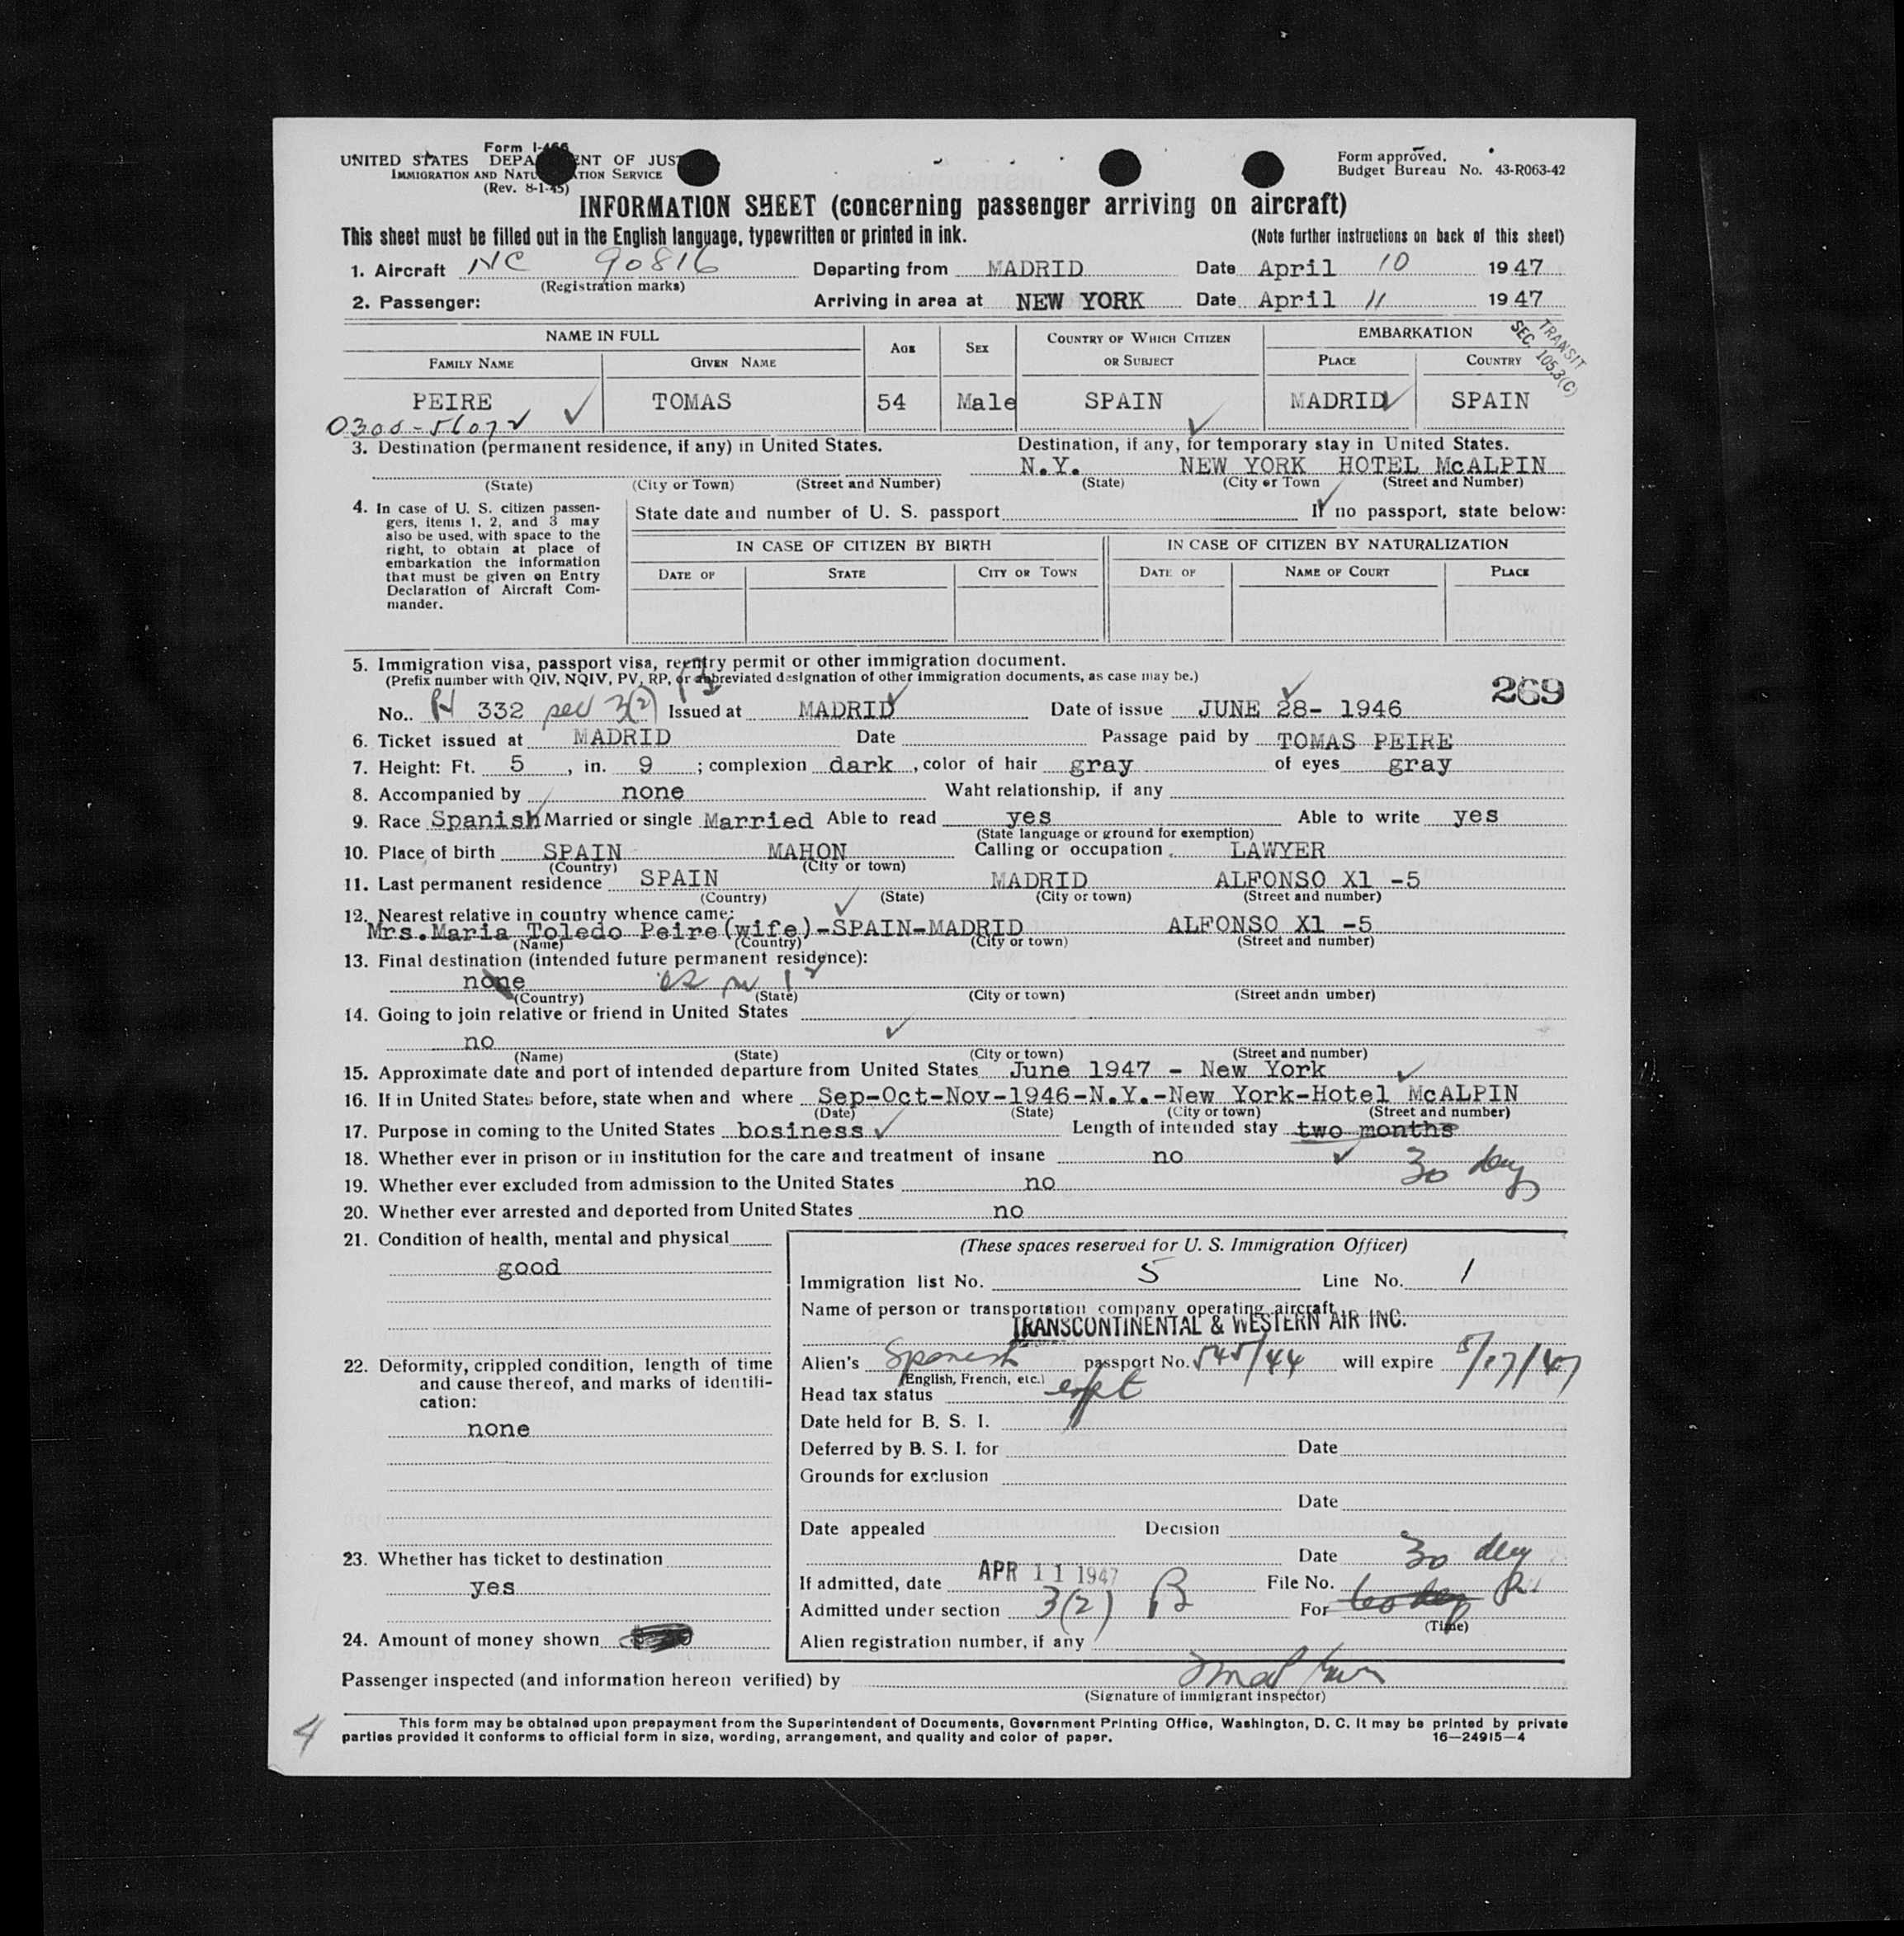 Form I-466
UNITED STATES DEPARTMENT OF JUSTICE
IMMIGRATION AND NATURALIZATION SERVICE
(Rev. 8-1-45)
Form approved.
Budget Bureau No. 43-R063-42
INFORMATION SHEET (concerning passenger arriving on aircraft)
This sheet must be filled out in the English language, typewritten or printed in ink. (Note further instructions on back of this sheet)
1. Aircraft NC 90816 Departing from MADRID Date April 10 1947
(Registration marks)
2. Passenger: Arriving in area at NEW YORK Date April 11 1947
TRANSIT
SEC. 105.3(C)
NAME IN FULL AGE SEX COUNTRY OF WHICH CITIZEN OR SUBJECT EMBARKATION
FAMILY NAME GIVEN NAME PLACE COUNTRY
PEIRE TOMAS 54 Male SPAIN MADRID SPAIN
0300-56072
3. Destination (permanent residence, if any) in United States. Destination, if any, for temporary stay in United States.
N.Y. NEW YORK HOTEL McALPIN
(State) (City or Town) (Street and Number) (State) (City or Town (Street and Number)
4. In case of U. S. citizen passen-
gers, items 1, 2, and 3 may
also be used, with space to the
right, to obtain at place of
embarkation the information
that must be given on Entry
Declaration of Aircraft Com-
mander.
State date and number of U. S. passport If no passport, state below:
IN CASE OF CITIZEN BY BIRTH IN CASE OF CITIZEN BY NATURALIZATION
DATE OF STATE CITY OR TOWN DATE OF NAME OF COURT PLACE
5. Immigration visa, passport visa, reentry permit or other immigration document.
(Prefix number with QIV, NQIV, PV, RP, or abbreviated designation of other immigration documents, as case may be.)
269
No.. 332 sec 3(2) Issued at MADRID Date of issue JUNE 28- 1946
6. Ticket issued at MADRID Date Passage paid by TOMAS PEIRE
7. Height: Ft. 5, in. 9; complexion dark, color of hair gray of eyes gray
8. Accompanied by none Waht relationship, if any
9. Race Spanish Married or single Married Able to read yes Able to write yes
(State language or ground for exemption)
10. Place of birth SPAIN MAHON Calling or occupation LAWYER
(Country) (City or town)
11. Last permanent residence SPAIN MADRID ALFONSO X1 -5
(Country) (State) (City or town) (Street and number)
12. Nearest relative in country whence came:
Mrs.Maria Toledo Peire(wife)-SPAIN-MADRID ALFONSO X1 -5
(Name) (Country) (City or town) (Street and number)
13. Final destination (intended future permanent residence):
none
(Country) (State) (City or town) (Street andn umber)
14. Going to join relative or friend in United States
no
(Name) (State) (City or town) (Street and number)
15. Approximate date and port of intended departure from United States June 1947 - New York
16. If in United States before, state when and where Sep-Oct-Nov-1946-N.Y.-New York-Hotel McALPIN
(Date) (State) (City or town) (Street and number)
17. Purpose in coming to the United States bosiness Length of intended stay two months
18. Whether ever in prison or in institution for the care and treatment of insane no 30 days
19. Whether ever excluded from admission to the United States no
20. Whether ever arrested and deported from United States no
21. Condition of health, mental and physical
good
22. Deformity, crippled condition, length of time
and cause thereof, and marks of identifi-
cation:
none
23. Whether has ticket to destination
yes
24. Amount of money shown
(These spaces reserved for U. S. Immigration Officer)
Immigration list No. 5 Line No. 1
Name of person or transportation company operating aircraft
TRANSCONTINENTAL & WESTERN AIR INC.
Alien's Spanish passport No. 545/44 will expire 5/17/47
(English, French, etc.)
Head tax status
Date held for B. S. I.
Deferred by B. S. I. for Date
Grounds for exclusion
Date
Date appealed Decision
Date 30 days
If admitted, date APR 11 1947 File No.
Admitted under section 3(2) B For 60 days
(Time)
Alien registration number, if any
Passenger inspected (and information hereon verified) by
(Signature of immigrant inspector)
4
This form may be obtained upon prepayment from the Superintendent of Documents, Government Printing Office, Washington, D. C. It may be printed by private
parties provided it conforms to official form in size, wording, arrangement, and quality and color of paper. 16—24915—4